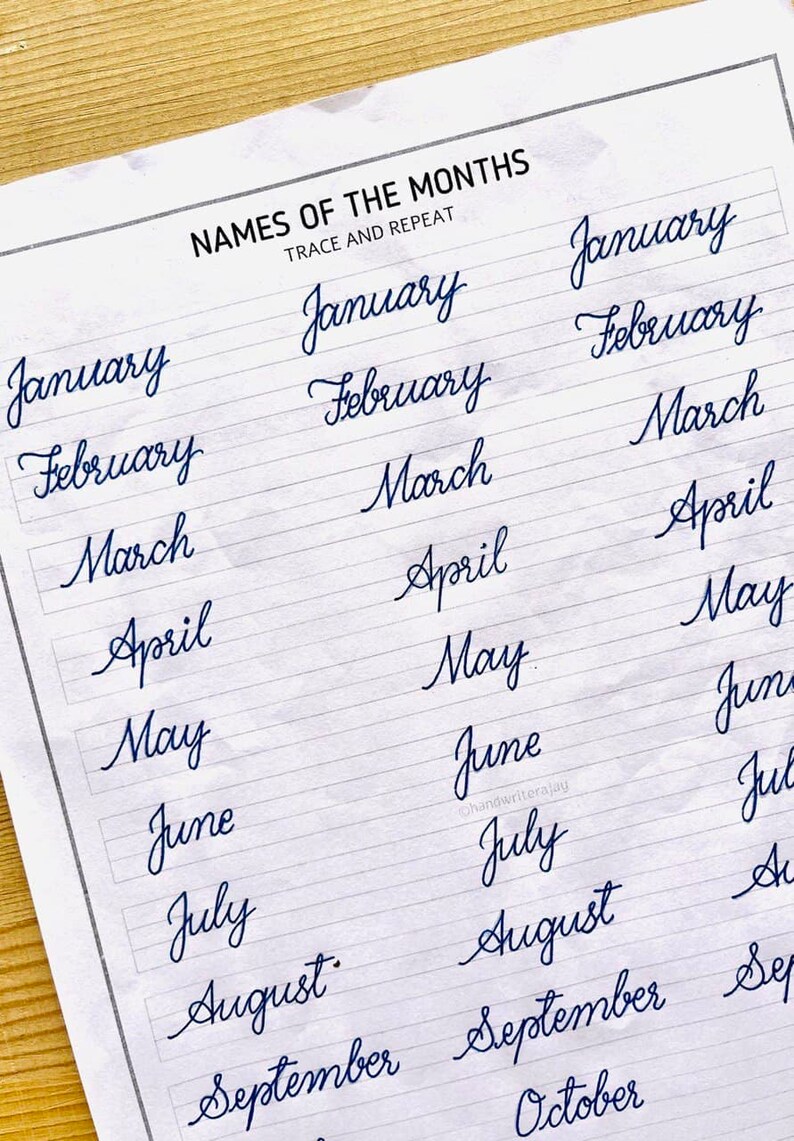 NAMES OF THE MONTHS
TRACE AND REPEAT
January January January
February February February
March March March
April April April
May May May
June June Jun
July July Jul
©handwriterajay
August August Au
September September Sep
October